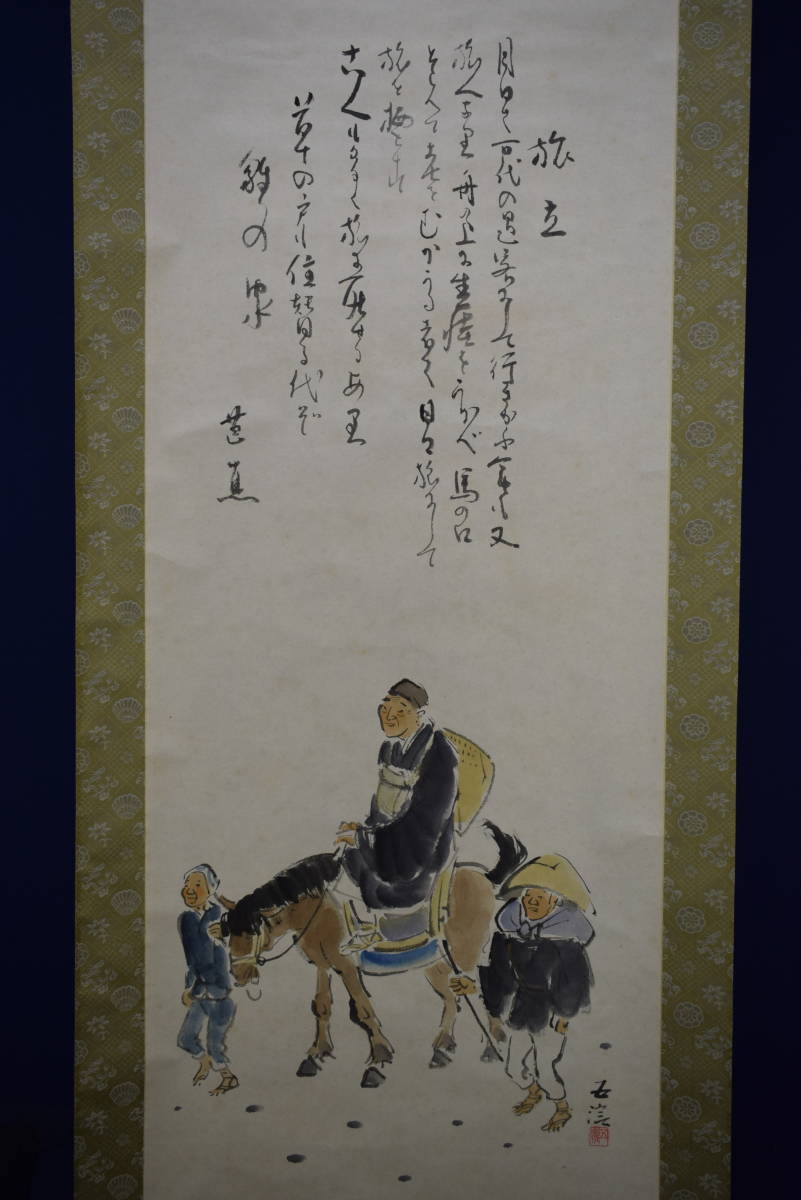 旅立
月日は百代の過客にして行かふ年も又
旅人なり舟の上に生涯をうかべ馬の口
とらへて老をむかふる者は日々旅にして
旅を栖とす
古人も多く旅に死せるあり
草の戸も住替る代ぞ
雛の家
芭蕉